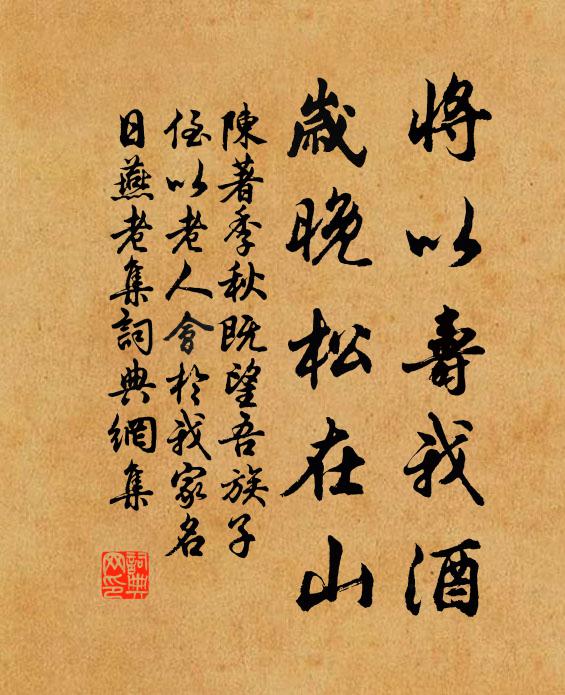 將以壽我酒
歲晚松在山
陳著季秋既望吾族子
侄以老人會於我家名
日燕老集詞典網集
詞典
网印